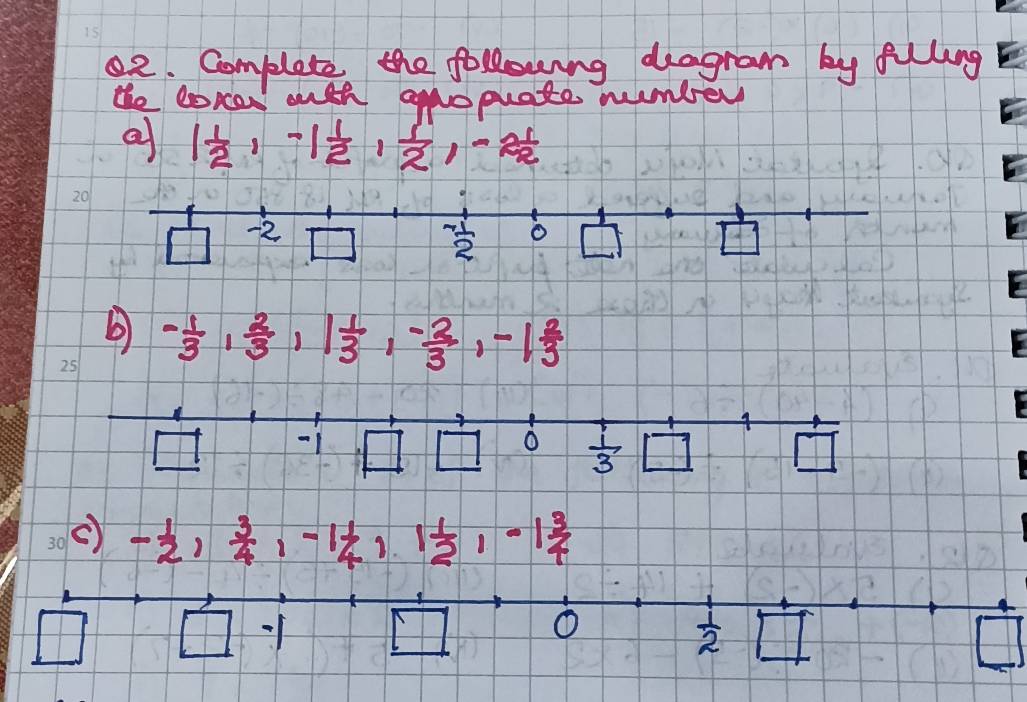 15
Q2. Complete the following diagram by filling
the boxes with appropriate numbers
a) 1 1/2, -1 1/2, 1/2, -2 1/2
20
-2 -1/2 0
b) -1/3, 2/3, 1 1/3, -2/3, -1 2/3
25
-1 0 1/3
30 c) -1/2, 3/4, -1 1/4, 1 1/2, -1 3/4
-1 0 1/2